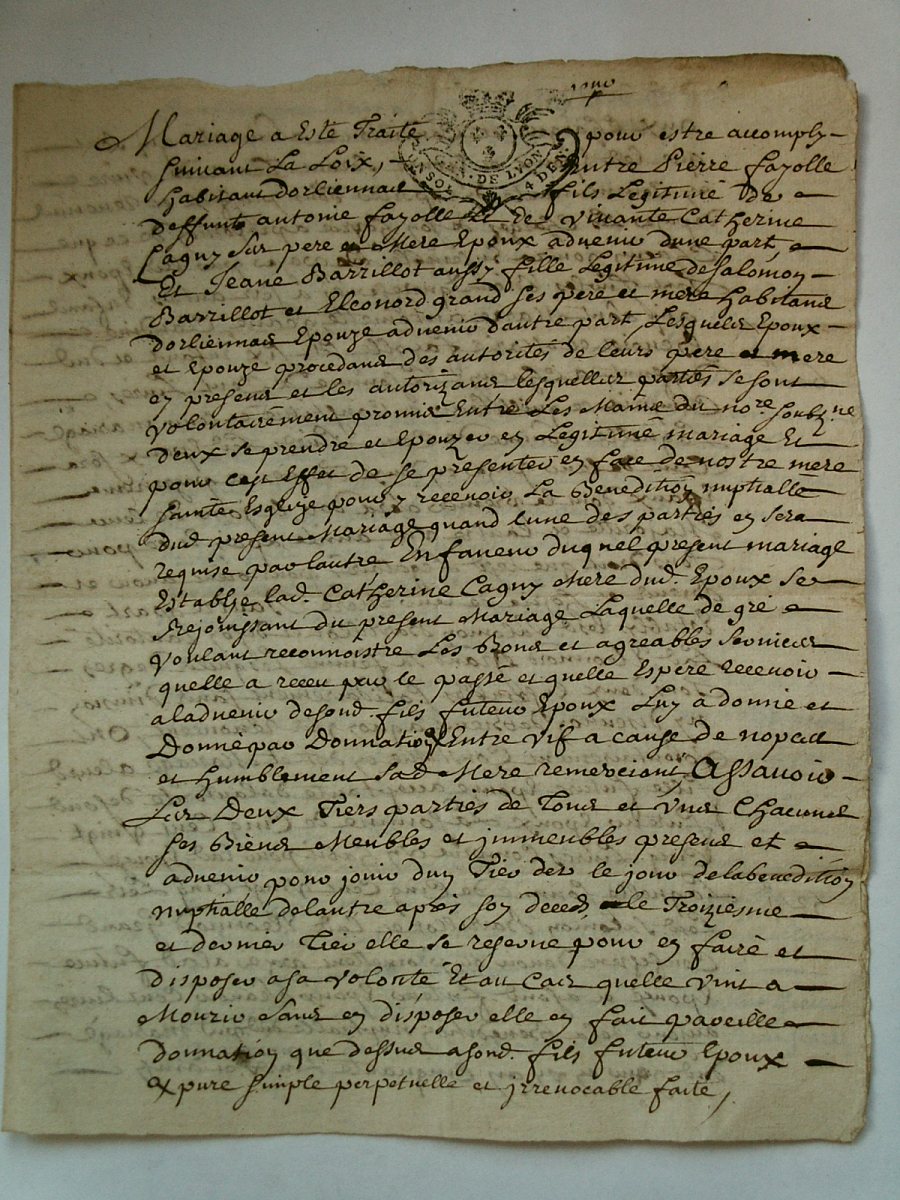 Mariage a Esté Traité pour estre accomply
suivant La Loix, Entre Pierre fayolle
habitant dorliennas fils Legitime de
deffunt antoine fayolle Et de vivante Catherine
Cagny Ses pere et Mere Epoux advenir dune part,
Et Jeane Barrillot aussy fille Legitime de Salomon
Barrillot et Eleonord grand ses pere et mere habitans
dorliennas Epouze advenir dautre part, Lesquels Epoux
et Epouze procedans des autorites de leurs pere et mere
en presens et les autorizans lesquelles parties se sont
volontairement promis Entre Les Mains du nore soubzne
deux se prendre et Epouzer en Legitime mariage Et
pour cest Effet de se presenter en face de nostre mere
sainte Esglize pour y recevoir La Benedition nuptialle
dud present Mariage quand lune des parties en sera
requise par lautre, En faveur duquel present mariage
Establye lad. Catherine Cagny Mere dud. Epoux se
Rejouissant du present Mariage Laquelle de gré
voulant reconnoistre Les Bons et agreables services
quelle a receu par le passé et quelle Espere recevoir
a ladvenir de sond. fils futeur Epoux Luy à donné et
Donne par Donnation Entre vif a cause de nopces
et humblement sad Mere remerciant, Assavoir
Les Deux Tiers parties de Tous et vns Chacuns
ses Biens Meubles et jmmeubles presens et
advenir pour jouir dun Tier des le jour de la benedition
nuptialle de lautre après son deced, le Troiziesme
et dernier Tier elle se reserve pour en faire et
disposer a sa volonté Et au Cas quelle vint a
Mourir Sans en disposer elle en fait pareille
donnation que dessus a sond. fils futeur Epoux
pure simple perpetuelle et jrrevocable faite,
DE LYON
4 DEN